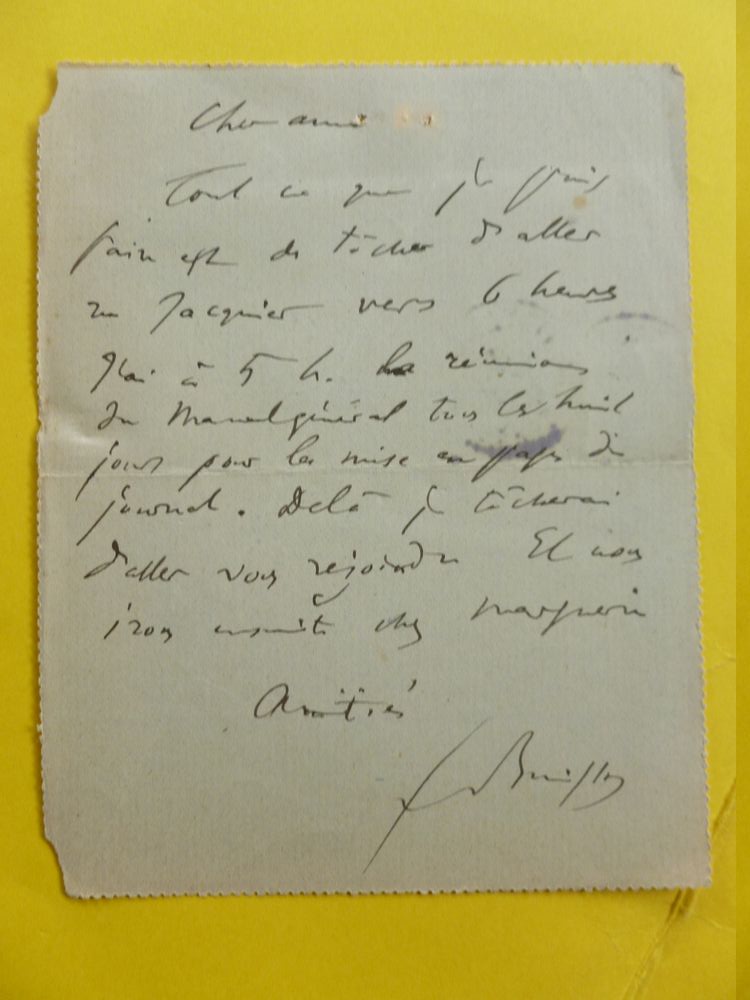 Cher ami
Tout ce que je puis
faire est de tâcher d'aller
au Jacquier vers 6 heures
J'ai à 5 h. la réunion
du Manuel général tous les huit
jours pour la mise en pages du
journal. De là je tâcherai
d'aller vous rejoindre Et nous
irons ensuite chez Marguerin
Amitiés
F Buisson